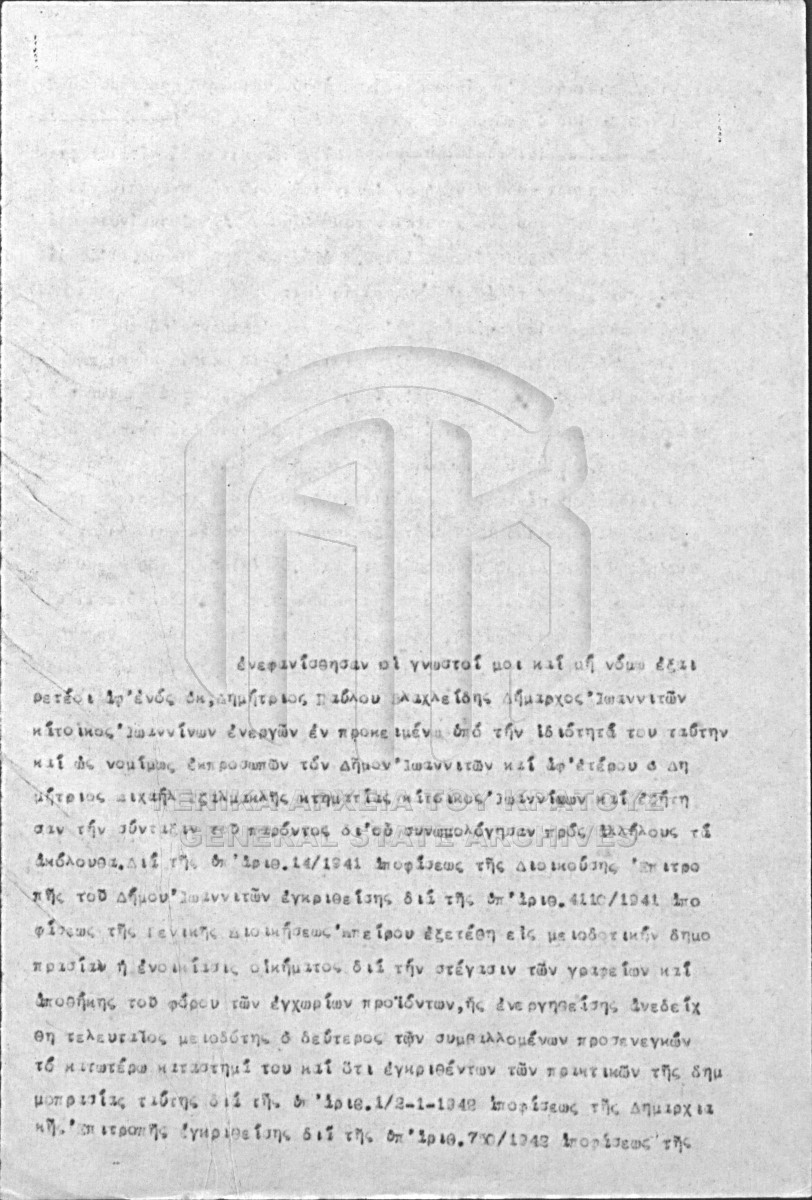 ἐνεφανίσθησαν οἱ γνωστοί μοι καί μή νόμω ἐξαι
ρετέοι ἀφ'ἑνός ὁκ,Δημήτριος Παύλου Βλαχλείδης Δήμαρχος Ἰωαννιτῶν
κάτοικος Ἰωαννίνων ἐνεργῶν ἐν προκειμένω ὑπό τήν ἰδιότητά του ταύτην
καί ὡς νομίμως ἐκπροσωπῶν τόν Δῆμον Ἰωαννιτῶν καί ἀφ'ἑτέρου ὁ Δη
μήτριος Μιχαήλ κτηματίας κάτοικος Ἰωαννίνων καί ἐζήτη
σαν τήν σύνταξιν τοῦ παρόντος δι'οὗ συνωμολόγησαν πρός ἀλλήλους τά
ἀκόλουθα.Διά τῆς ὑπ'ἀριθ.14/1941 ἀποφάσεως τῆς Διοικούσης Ἐπιτρο
πῆς τοῦ Δήμου Ἰωαννιτῶν ἐγκριθείσης διά τῆς ὑπ'ἀριθ.4110/1941 ἀπο
φάσεως τῆς Γενικῆς Διοικήσεως Ἠπείρου ἐξετέθη εἰς μειοδοτικήν δημο
πρασίαν ἡ ἐνοικίασις οἰκήματος διά τήν στέγασιν τῶν γραφείων καί
ἀποθήκης τοῦ φόρου τῶν ἐγχωρίων προϊόντων,ἧς ἐνεργηθείσης ἀνεδείχ
θη τελευταῖος μειοδότης ὁ δεύτερος τῶν συμβαλλομένων προσενεγκών
τό κατωτέρω κατάστημά του καί ὅτι ἐγκριθέντων τῶν πρακτικῶν τῆς δημ
μοπρασίας ταύτης διά τῆς ὑπ'ἀριθ.1/2-1-1942 ἀποφάσεως τῆς Δημαρχια
κῆς Ἐπιτροπῆς ἐγκριθείσης διά τῆς ὑπ'ἀριθ. ἀποφάσεως τῆς
ΓΕΝΙΚΑ ΑΡΧΕΙΑ ΤΟΥ ΚΡΑΤΟΥΣ
GENERAL STATE ARCHIVES